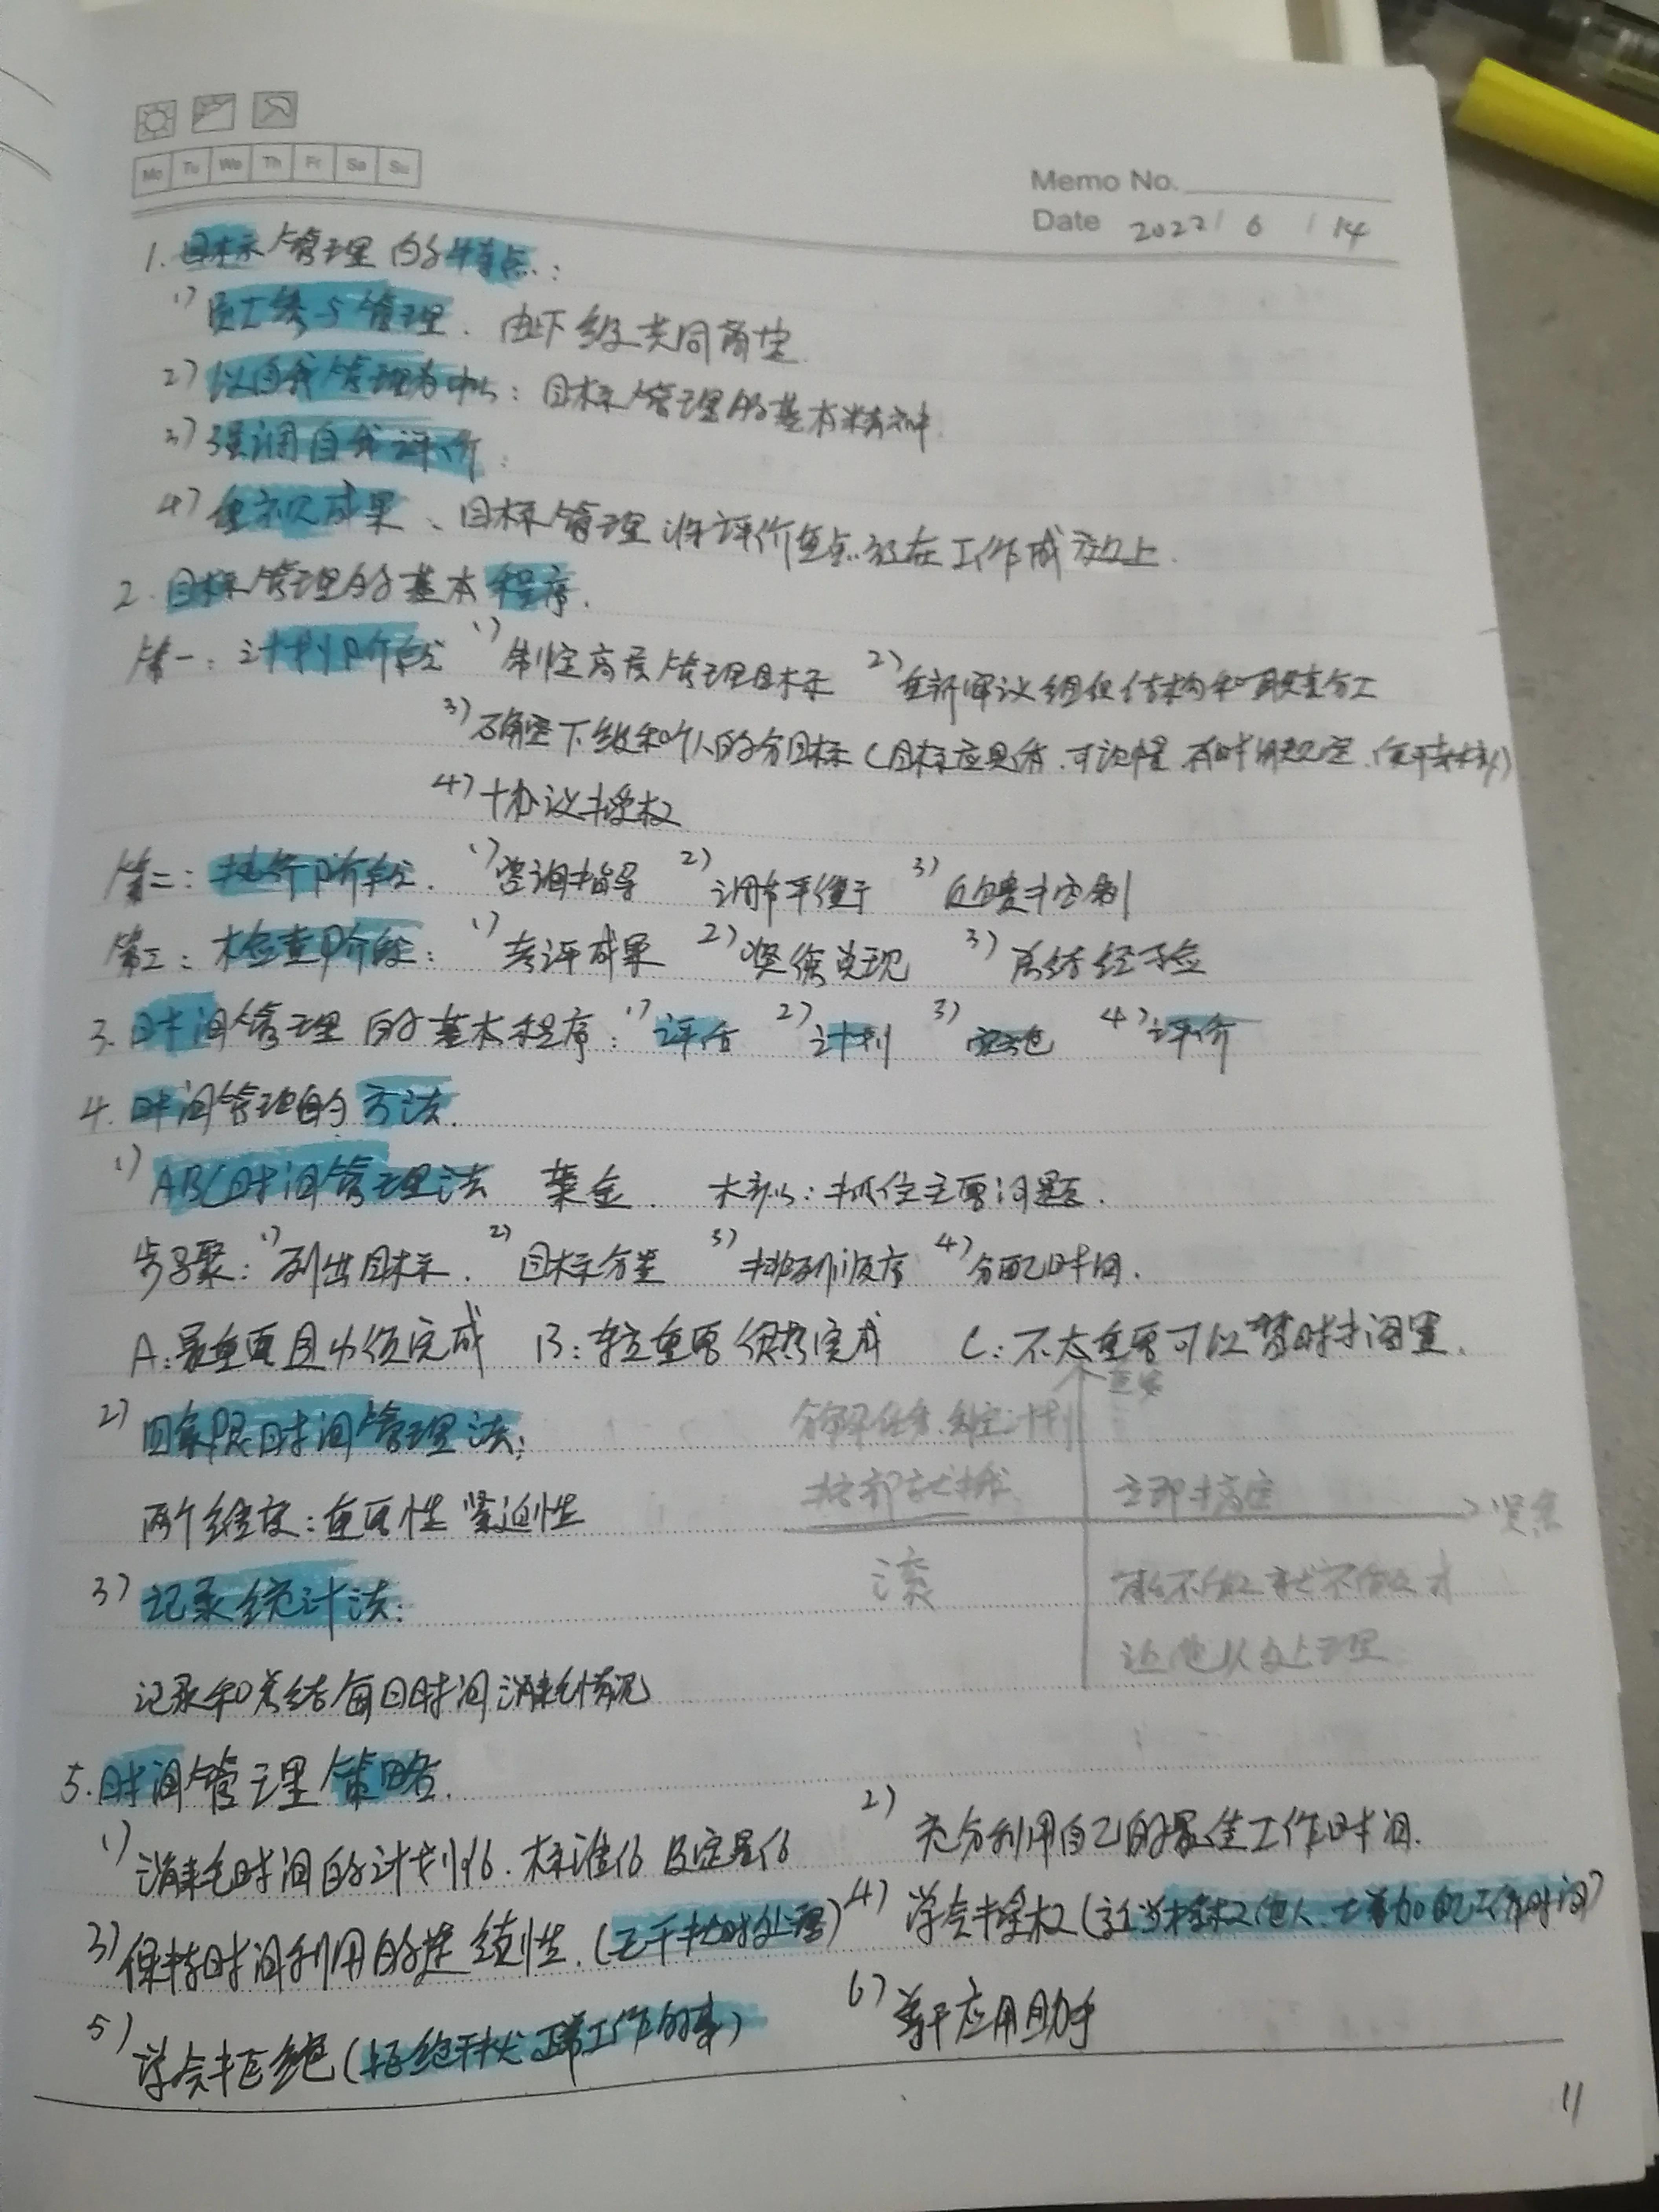 Mo Tu We Th Fr Sa Su
Memo No.
Date 2022/6/14
1.目标管理的特点:
1)员工参与管理.由下级共同商定
2)以自我管理为中心:目标管理的基本精神
3)强调自我评价:
4)重视成果、目标管理将评价重点放在工作成效上.
2.目标管理的基本程序.
第一:计划阶段 1)制定高层管理目标 2)重新审议组织结构和职责分工
3)确定下级和个人的分目标(目标应具体.可测量.有时间规定.便于考核)
4)协议授权
第二:执行阶段. 1)咨询指导 2)调节平衡 3)反馈控制
第三:检查阶段: 1)考评成果 2)奖惩兑现 3)总结经验
3.时间管理的基本程序:1)评估 2)计划 3)实施 4)评价
4.时间管理的方法.
1)ABC时间管理法 莱金. 核心:抓住主要问题.
步骤:1)列出目标. 2)目标分类 3)排列顺序 4)分配时间.
A:最重要且必须完成 B:较重要很想完成 C:不太重要可以暂时搁置.
重要
2)四象限时间管理法:
分解任务.制定计划
两个维度:重要性 紧迫性
按部就班
立即搞定
紧急
3)记录统计法:
滚
能不做就不做或才
让他人处理
记录和总结每日时间消耗情况
5.时间管理策略.
1)消耗时间的计划化.标准化及定量化
2)充分利用自己的最佳工作时间.
3)保持时间利用的连续性.(无干扰时处理)
4)学会授权(适当授权他人.增加自己工作时间)
5)学会拒绝(拒绝干扰正常工作的事)
6)善于应用助手
11